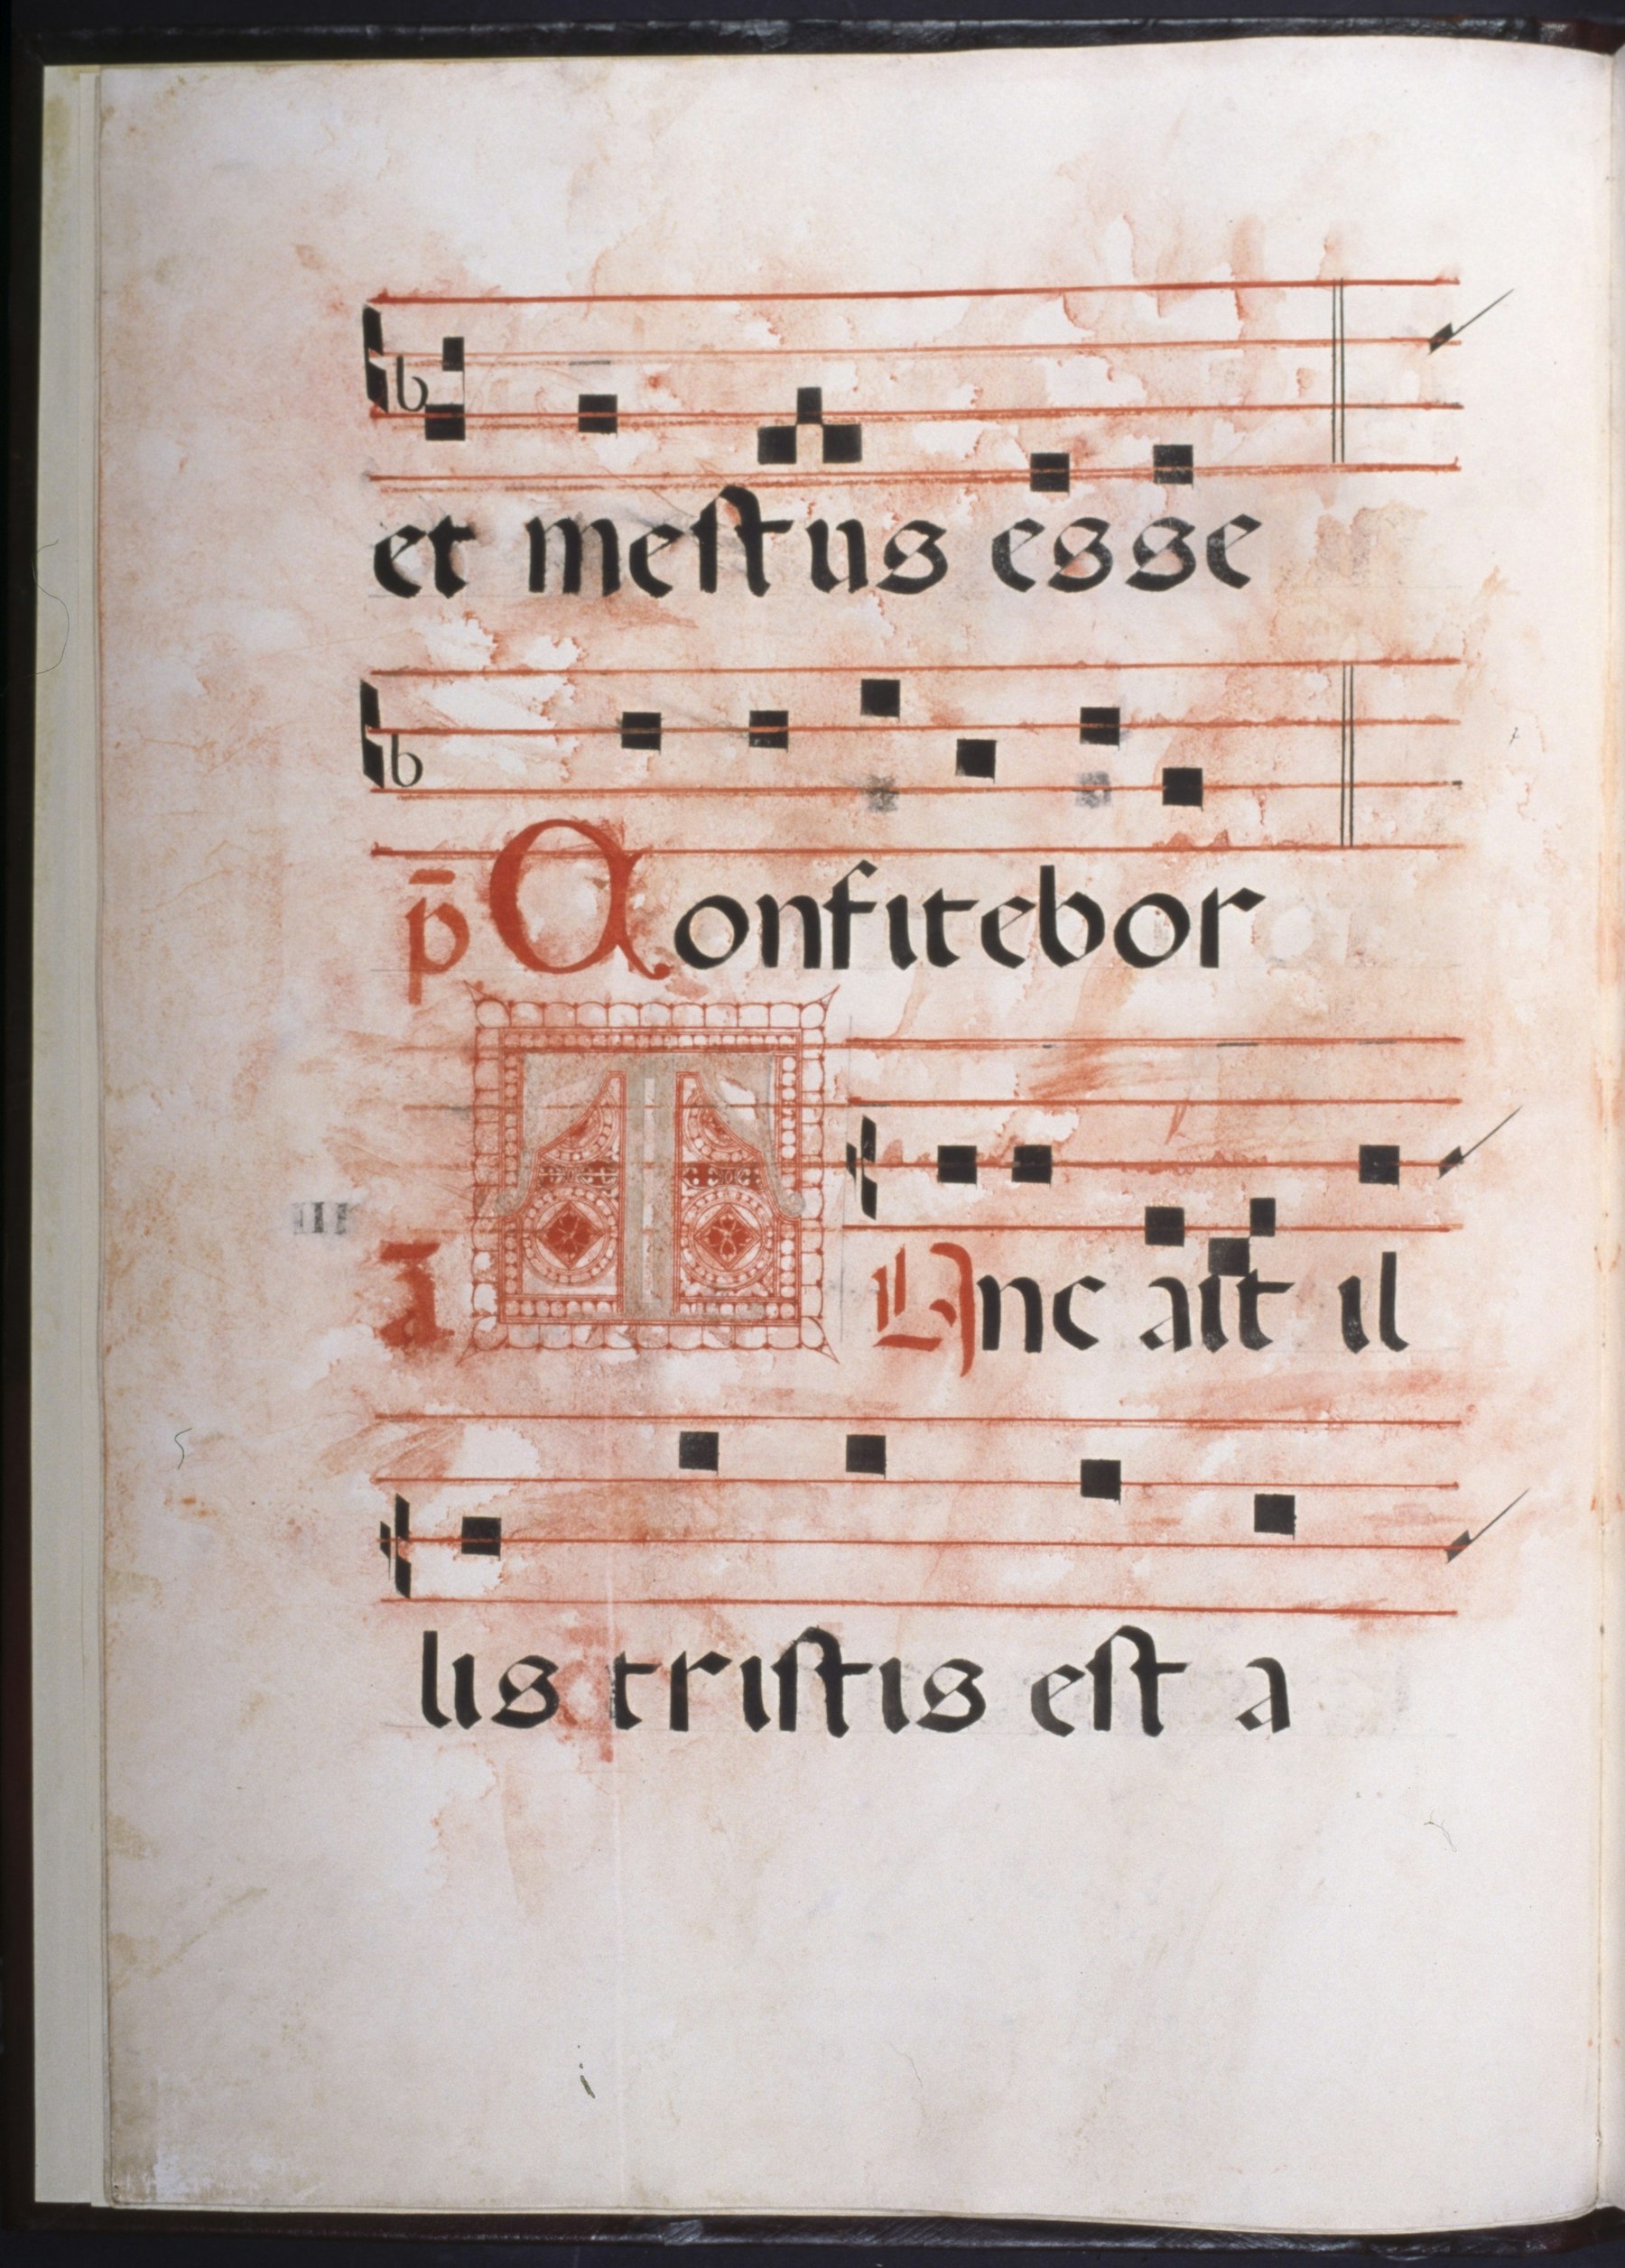 et meſtus esse
p̄ Confitebor
III
ā TUnc ait il
lis triſtis eſt a